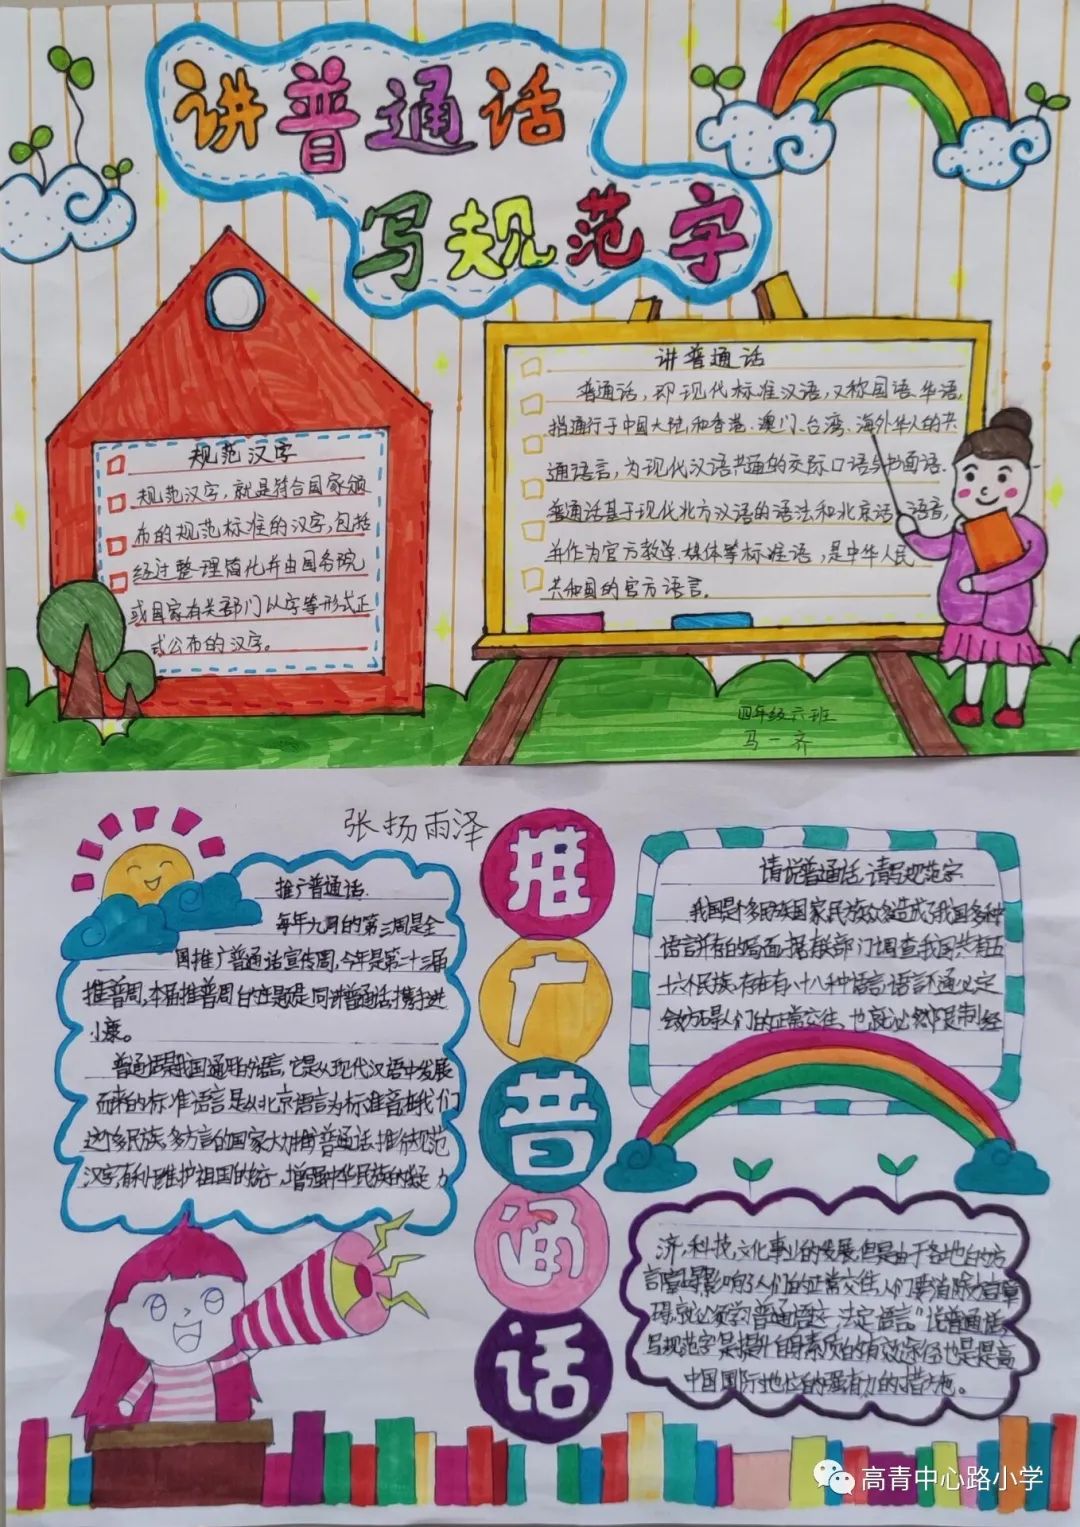 讲普通话
写规范字
规范汉字
规范汉字，就是符合国家颁
布的规范标准的汉字，包括
经过整理简化并由国务院
或国家有关部门以字等形式正
式公布的汉字。
讲普通话
普通话，即现代标准汉语，又称国语、华语，
指通行于中国大陆和香港、澳门、台湾、海外华人的共
通语言，为现代汉语共通的交际口语与书面语.
普通话基于现代北方汉语的语法和北京话语音，
并作为官方教学、媒体等标准语，是中华人民
共和国的官方语言.
四年级六班
马一齐
张扬雨泽
推广普通话
推广普通话.
每年九月的第三周是全
国推广普通话宣传周，今年是第二十三届
推普周，本届推普周的主题是同讲普通话，携手进
小康。
普通话是我国通用的语言，它是从现代汉语中发展
而来的标准语言是以北京语言为标准音在我们
这个多民族、多方言的国家大力推广普通话、推行规范
汉字有利于维护祖国的统一，增强中华民族的凝力
请说普通话，请写规范字
我国是个多民族国家民族众多造成了我国多种
语言并存的局面，据有关部门调查我国共有五
十六个民族，存在有八十八种语言，语言不通必定
会妨碍人们的正常交往，也就必然限制经
济，科技，文化事业的发展，但是由于各地的方
言严重影响了人们的正常交往，人们要消除语言障
碍，就必须学习普通话这一法定语言。"说普通话，
写规范字"是提升自身素质的有效途径也是提高
中国国际地位的强有力的措施。
高青中心路小学